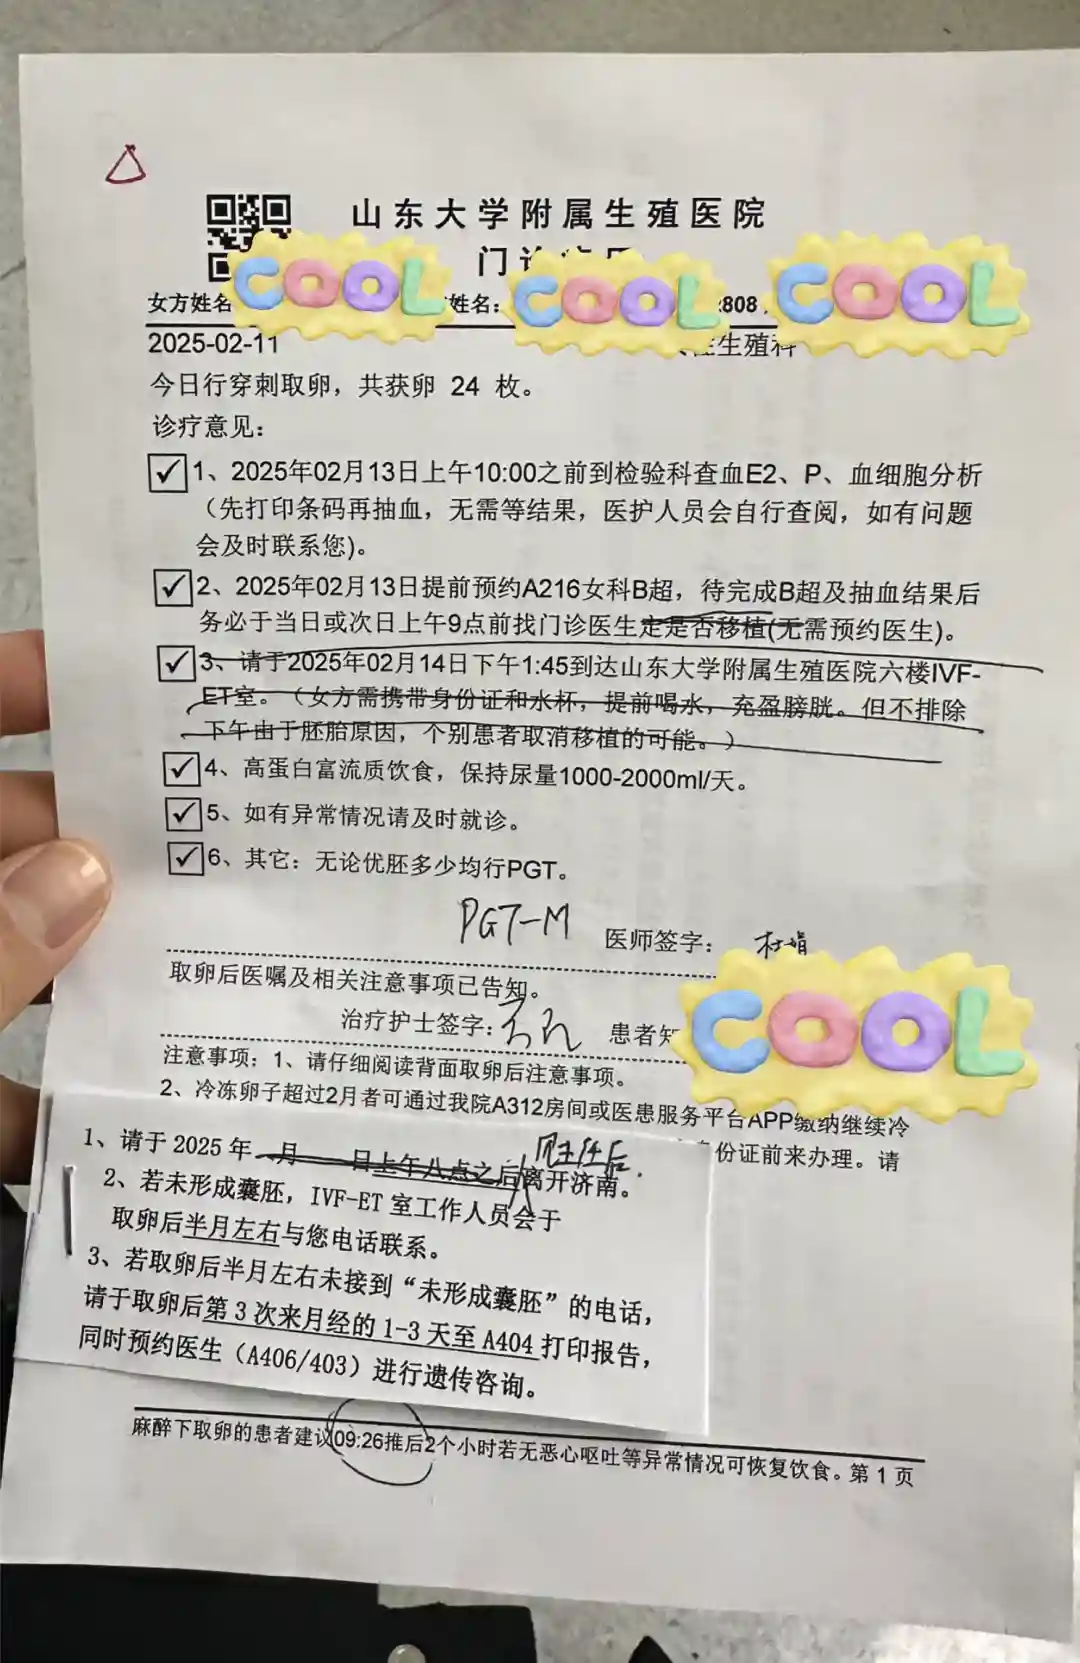 山东大学附属生殖医院
门诊
COOL COOL COOL
女方姓名 姓名： 808
2025-02-11 生殖科
今日行穿刺取卵，共获卵 24 枚。
诊疗意见：
✓ 1、2025年02月13日上午10:00之前到检验科查血E2、P、血细胞分析
（先打印条码再抽血，无需等结果，医护人员会自行查阅，如有问题
会及时联系您)。
✓ 2、2025年02月13日提前预约A216女科B超，待完成B超及抽血结果后
务必于当日或次日上午9点前找门诊医生定是否移植(无需预约医生)。
✓ 3、请于2025年02月14日下午1:45到达山东大学附属生殖医院六楼IVF-
ET室。（女方需携带身份证和水杯，提前喝水，充盈膀胱。但不排除
下午由于胚胎原因，个别患者取消移植的可能。）
✓ 4、高蛋白富流质饮食，保持尿量1000-2000ml/天。
✓ 5、如有异常情况请及时就诊。
✓ 6、其它：无论优胚多少均行PGT。
PGT-M 医师签字：
取卵后医嘱及相关注意事项已告知。
治疗护士签字： 患者知
COOL
注意事项：1、请仔细阅读背面取卵后注意事项。
2、冷冻卵子超过2月者可通过我院A312房间或医患服务平台APP缴纳继续冷
份证前来办理。请
1、请于 2025 年 月 日上午八点之后离开济南。
2、若未形成囊胚，IVF-ET 室工作人员会于
取卵后半月左右与您电话联系。
3、若取卵后半月左右未接到“未形成囊胚”的电话，
请于取卵后第 3 次来月经的 1-3 天至 A404 打印报告，
同时预约医生（A406/403）进行遗传咨询。
麻醉下取卵的患者建议09:26推后2个小时若无恶心呕吐等异常情况可恢复饮食。第 1 页